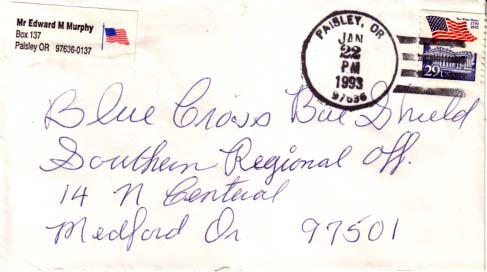 Mr Edward M Murphy
Box 137
Paisley OR  97636-0137
PAISLEY, OR
JAN
22
PM
1993
97636
29 USA
Blue Cross Bue Shield
Southern Regional Off.
14 N Central
Medford Or 97501